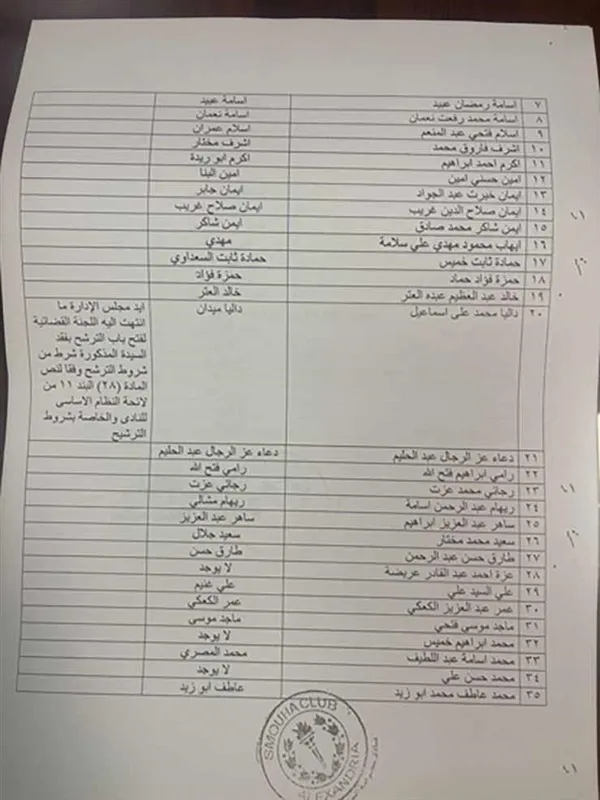 ٧ اسامة رمضان عبيد اسامة عبيد
٨ اسامة محمد رفعت نعمان اسامة نعمان
٩ اسلام فتحي عبد المنعم اسلام عمران
١٠ اشرف فاروق محمد اشرف مختار
١١ اكرم احمد ابراهيم اكرم ابو ريدة
١٢ امين حسني امين امين البنا
١٣ ايمان خيرت عبد الجواد ايمان جابر
١٤ ايمان صلاح الدين غريب ايمان صلاح غريب
١٥ ايمن شاكر محمد صادق ايمن شاكر
١٦ ايهاب محمود مهدي علي سلامة مهدي
١٧ حمادة ثابت خميس حمادة ثابت السعداوي
١٨ حمزة فؤاد حماد حمزة فؤاد
١٩ خالد عبد العظيم عبده العتر خالد العتر
٢٠ داليا محمد على اسماعيل داليا ميدان
ايد مجلس الإدارة ما
انتهت اليه اللجنة القضائية
لفتح باب الترشح بفقد
السيدة المذكورة شرط من
شروط الترشح وفقا لنص
المادة (٢٨) البند ١١ من
لائحة النظام الاساسى
للنادى والخاصة بشروط
الترشيح
٢١ دعاء عز الرجال عبد الحليم دعاء عز الرجال عبد الحليم
٢٢ رامي ابراهيم فتح الله رامي فتح الله
٢٣ رجائي محمد عزت رجائي عزت
٢٤ ريهام عبد الرحمن اسامة ريهام مشالي
٢٥ ساهر عبد العزيز ابراهيم ساهر عبد العزيز
٢٦ سعيد محمد مختار سعيد جلال
٢٧ طارق حسن عبد الرحمن طارق حسن
٢٨ عزة احمد عبد القادر عريضة لا يوجد
٢٩ علي السيد علي علي غنيم
٣٠ عمر عبد العزيز الكعكي عمر الكعكي
٣١ ماجد موسى فتحي ماجد موسى
٣٢ محمد ابراهيم خميس لا يوجد
٣٣ محمد اسامة عبد اللطيف محمد المصري
٣٤ محمد حسن علي لا يوجد
٣٥ محمد عاطف محمد ابو زيد عاطف ابو زيد
SMOUHA CLUB
ALEXANDRIA